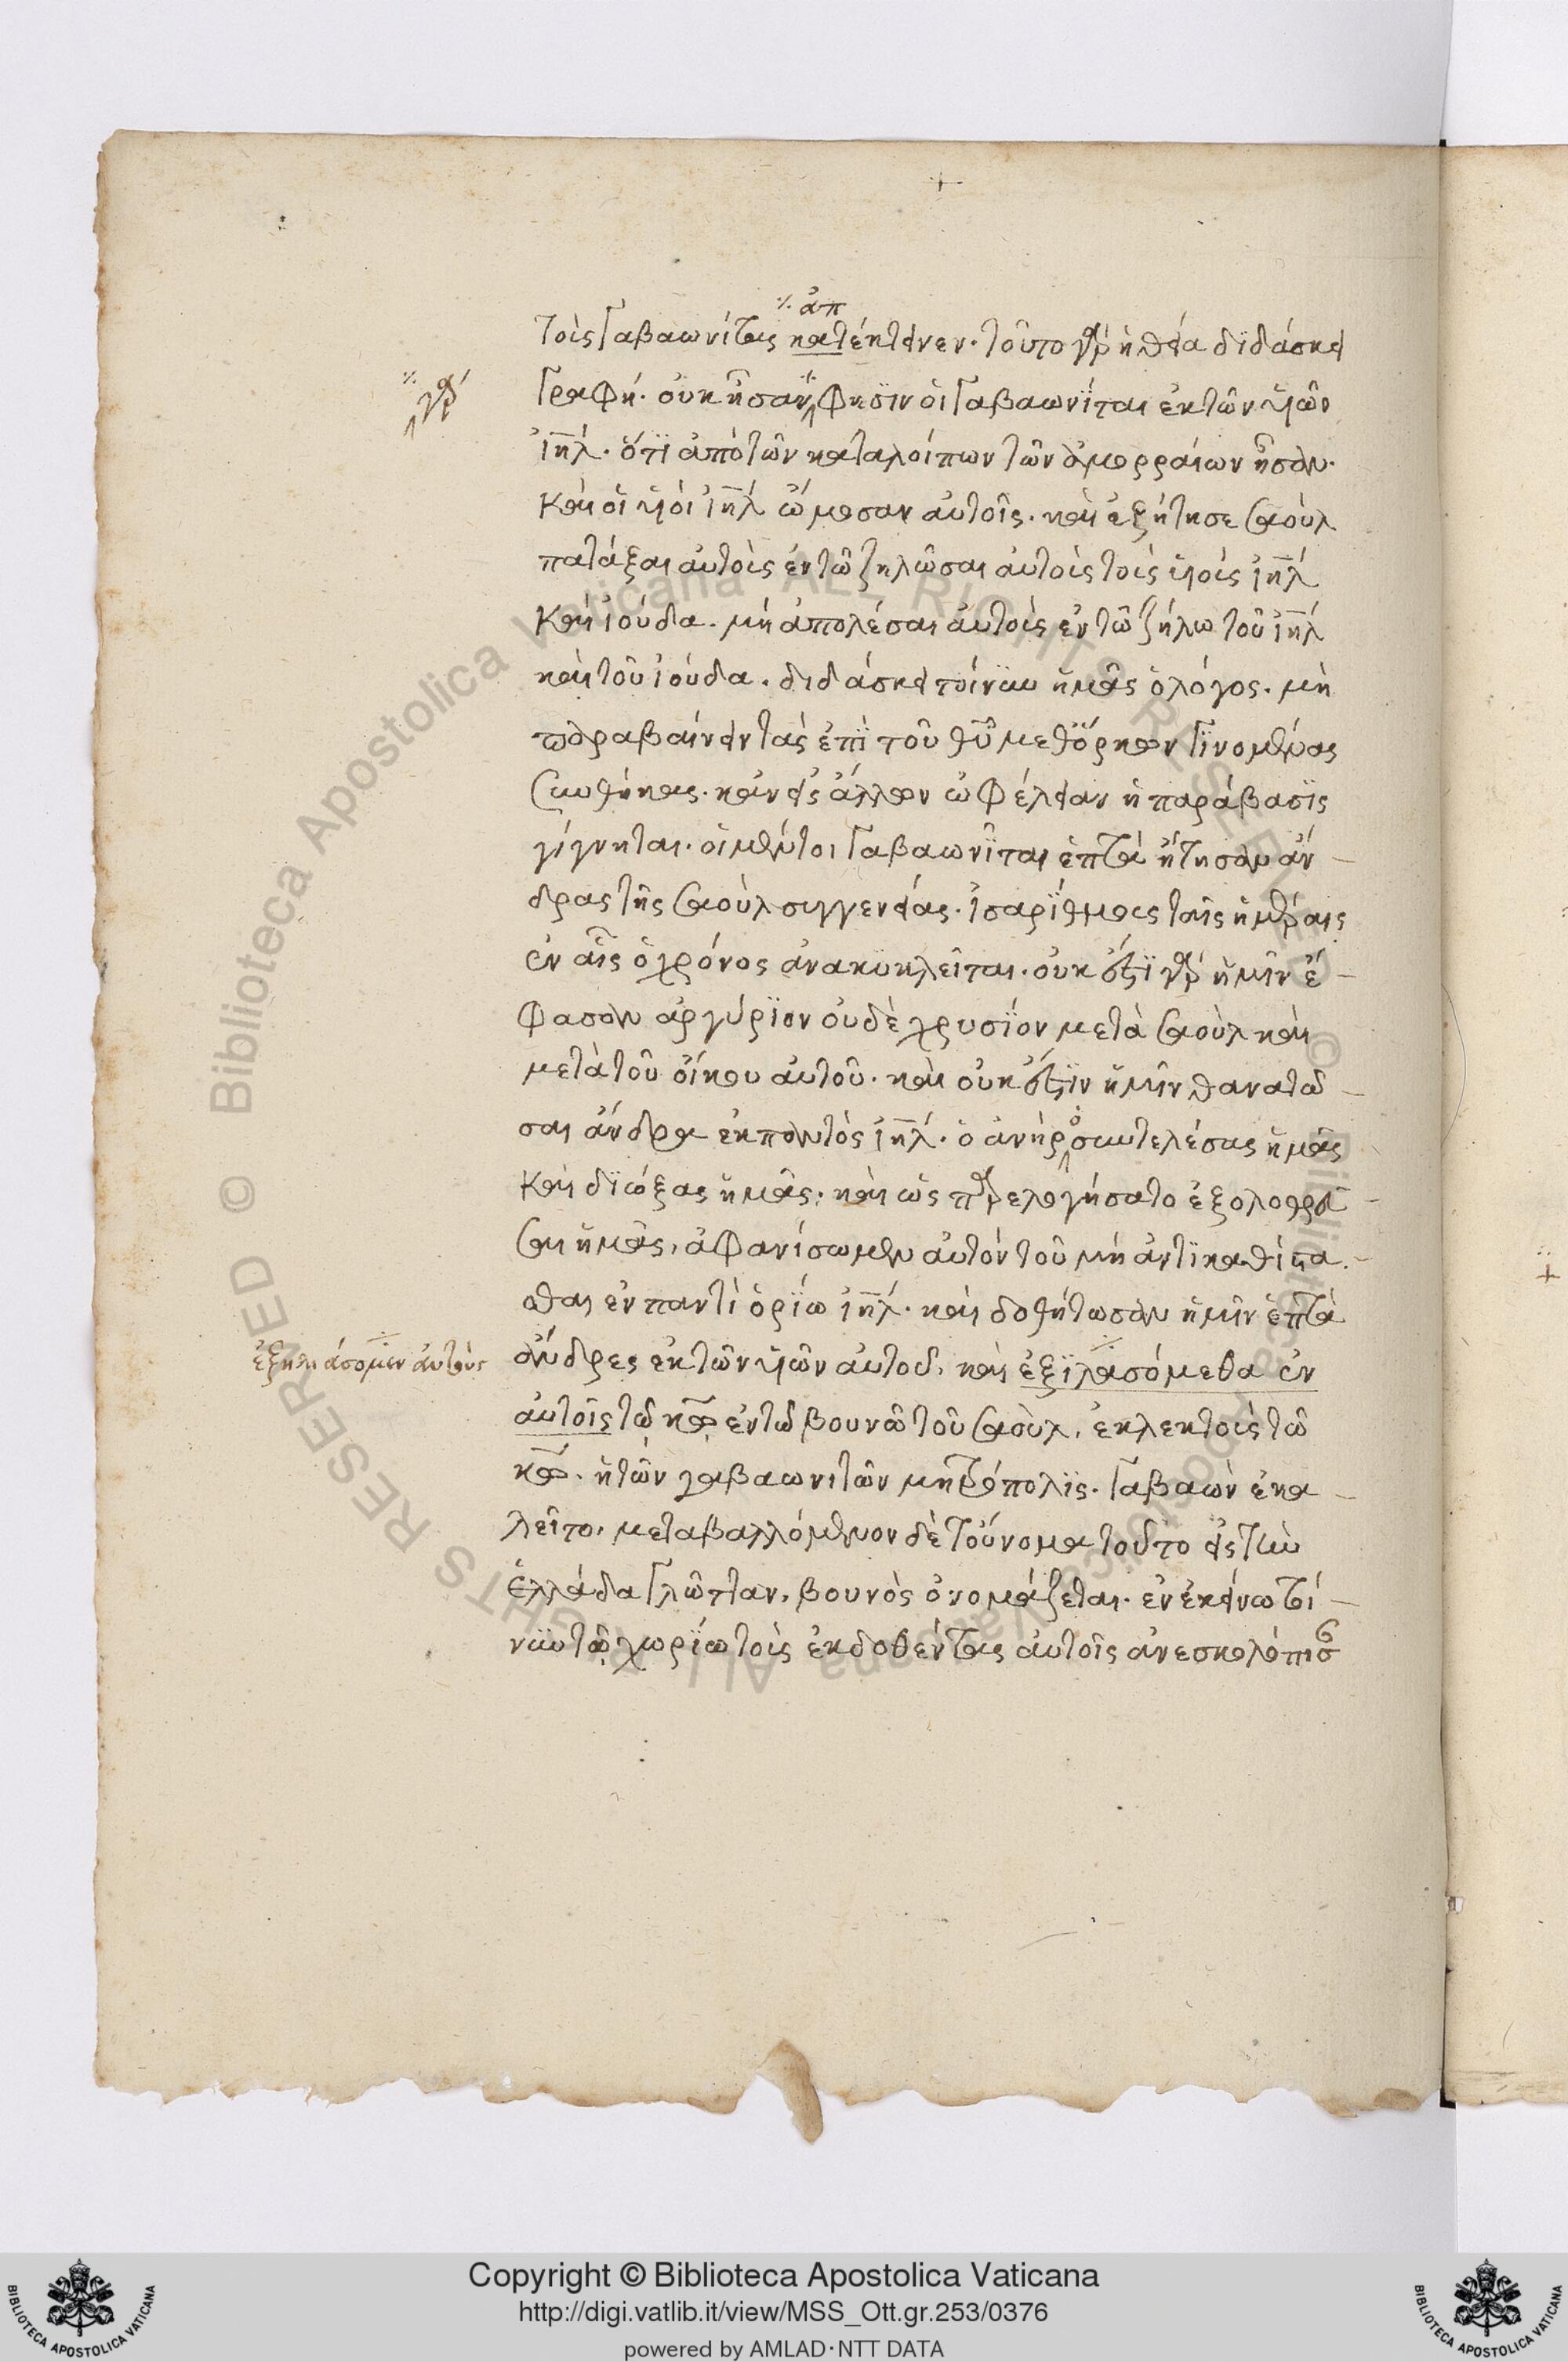 ⁒ ἀπ
τοὺς Γαβαωνίτας κατέκτεινεν· τοῦτο γὰρ ἡ θεία διδάσκει
⁒ γὰρ
Γραφή· οὐκ ἦσαν φησὶν οἱ Γαβαωνῖται ἐκ τῶν υἱῶν
ἰηλ· ὅτι ἀπὸ τῶν καταλοίπων τῶν ἀμορραίων ἦσαν·
καὶ οἱ υἱοὶ ἰηλ ὤμοσαν αὐτοῖς· καὶ ἐζήτησε Σαοὺλ
πατάξαι αὐτοὺς ἐν τῶ ζηλῶσαι αὐτοὺς τοὺς υἱοὺς ἰηλ
καὶ ἰούδα· μὴ ἀπολέσαι αὐτοὺς ἐν τῶ ζήλω τοῦ ἰηλ
καὶ τοῦ ἰούδα· διδάσκει τοίνυν ἡμᾶς ὁ λόγος· μὴ
παραβαίνειν τὰς ἐπὶ τοῦ θῦ μεθ' ὅρκων γινομένας
συνθήκας· κἀν εἰς ἄλλων ὠφέλειαν ἡ παράβασις
γίγνηται· οἱ μέντοι Γαβαωνῖται ἑπτὰ ἤτησαν ἄν-
δρας τῆς Σαοὺλ συγγενείας· ἰσαρίθμους ταῖς ἡμέραις
ἐν αἷς ὁ χρόνος ἀνακυκλεῖται· οὐκ ἔστι γὰρ ἡμῖν ἔ-
φασαν ἀργύριον οὐδὲ χρυσίον μετὰ Σαοὺλ καὶ
μετὰ τοῦ οἴκου αὐτοῦ· καὶ οὐκ ἔστιν ἡμῖν θανατῶ-
σαι ἄνδρα ἐκ παντὸς ἰηλ· ὁ ἀνὴρ ὁ συντελέσας ἡμᾶς
καὶ διώξας ἡμᾶς· καὶ ὡς παρελογήσατο ἐξολοθρεῦ-
σαι ἡμᾶς, ἀφανίσωμεν αὐτὸν τοῦ μὴ ἀντικαθίστα-
σθαι ἐν παντὶ ὁρίω ἰηλ· καὶ δοθήτωσαν ἡμῖν ἑπτὰ
ἐξηλιάσομεν αὐτοὺς
ἄνδρες ἐκ τῶν υἱῶν αὐτοῦ, καὶ ἐξιλασόμεθα ἐν
αὐτοῖς τῷ κω ἐν τῶ βουνῶ τοῦ Σαοὺλ, ἐκλεκτοὺς τῶ
κω· ἡ τῶν γαβαωνιτῶν μητρόπολις· Γαβαὼν ἐκα-
λεῖτο, μεταβαλλόμενον δὲ τοὔνομα τοῦτο εἰς τὴν
ἑλλάδα γλῶτταν, βουνὸς ὀνομάζεται· ἐν ἐκείνω τοί-
νυν τῷ χωρίω τοὺς ἐκδοθέντας αὐτοῖς ἀνεσκολόπισ
Copyright © Biblioteca Apostolica Vaticana
http://digi.vatlib.it/view/MSS_Ott.gr.253/0376
powered by AMLAD·NTT DATA